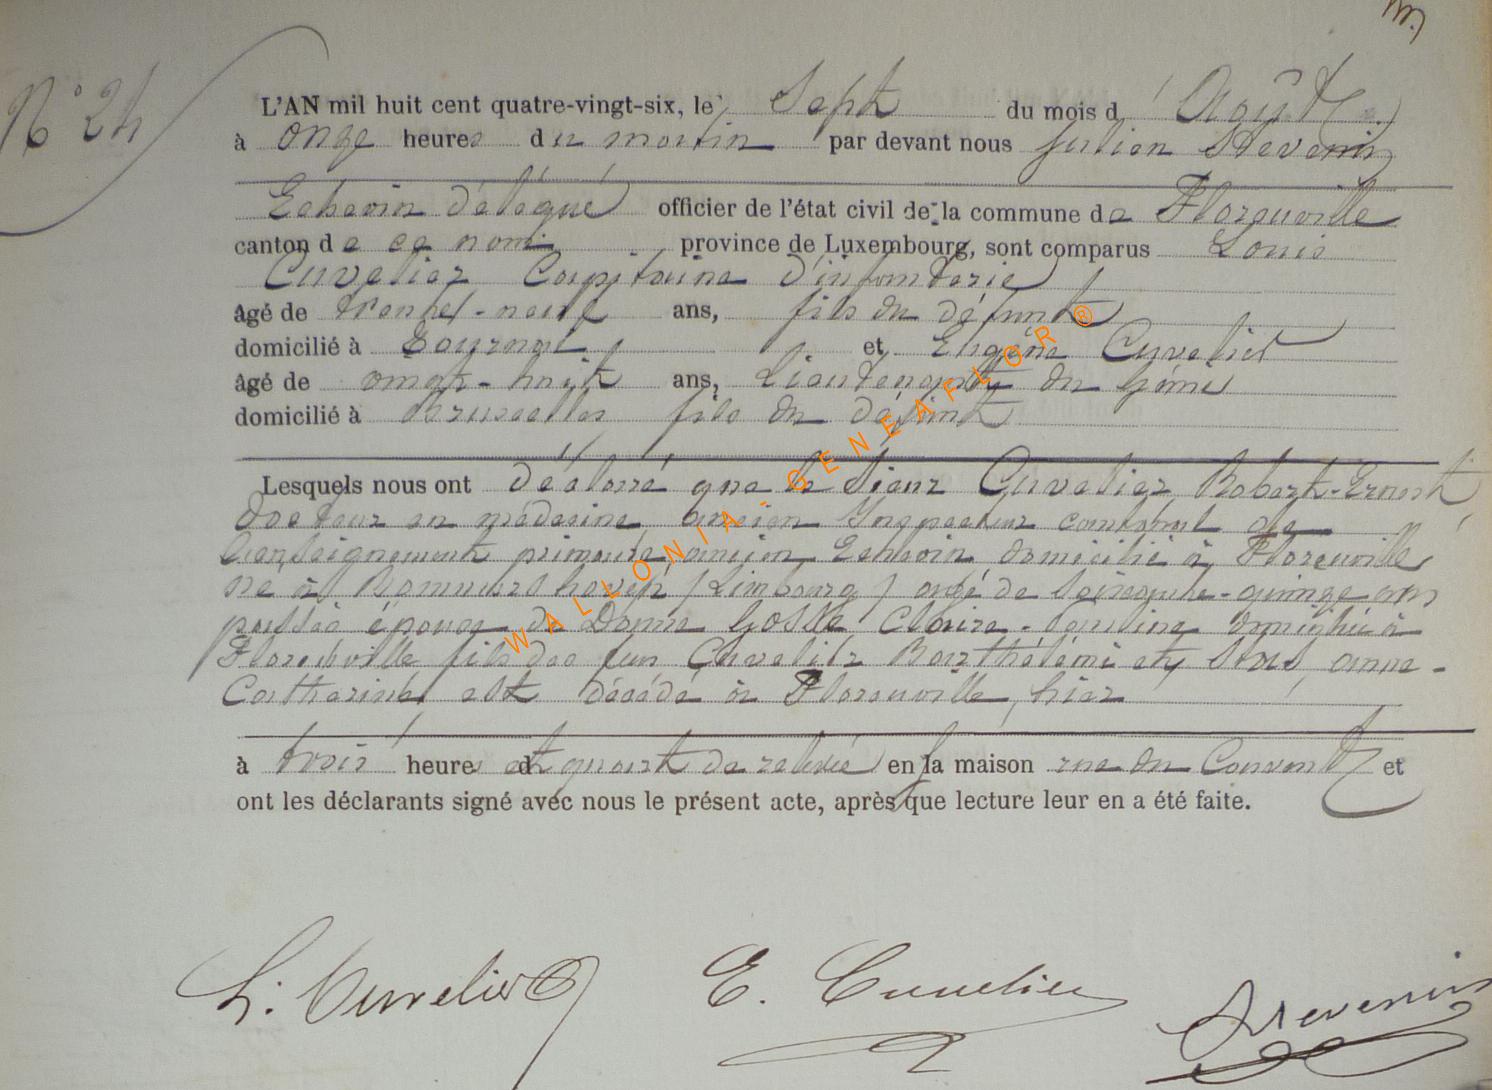 N° 24
L'AN mil huit cent quatre-vingt-six, le Sept du mois d' Août
à onze heures du matin par devant nous Julien Stevenin
Echevin délégué officier de l'état civil de la commune de Florenville
canton de ce nom province de Luxembourg, sont comparus Louis
Cuvelier Capitaine d'infanterie
âgé de trente-neuf ans, fils du défunt
domicilié à Tournai et Eugène Cuvelier
âgé de vingt-huit ans, Lieutenant du Génie
domicilié à Bruxelles fils du défunt
Lesquels nous ont déclaré que le Sieur Cuvelier Robert-Ernest
Docteur en médecine, ancien Inspecteur cantonal de
l'enseignement primaire, ancien Echevin domicilié à Florenville
né à Rommershoven (Limbourg) agé de soixante-quinze ans
époux de Dame Gosse Claire - domiciliée à
Florenville fils des feus Cuvelier Barthélémi et anne-
Catherine, est décédé à Florenville, hier
à trois heures et quart de relevée en sa maison rue du Couvent et
ont les déclarants signé avec nous le présent acte, après que lecture leur en a été faite.
L. Cuvelier E. Cuvelier Stevenin
WALLONIA-GENEAFLOR ®